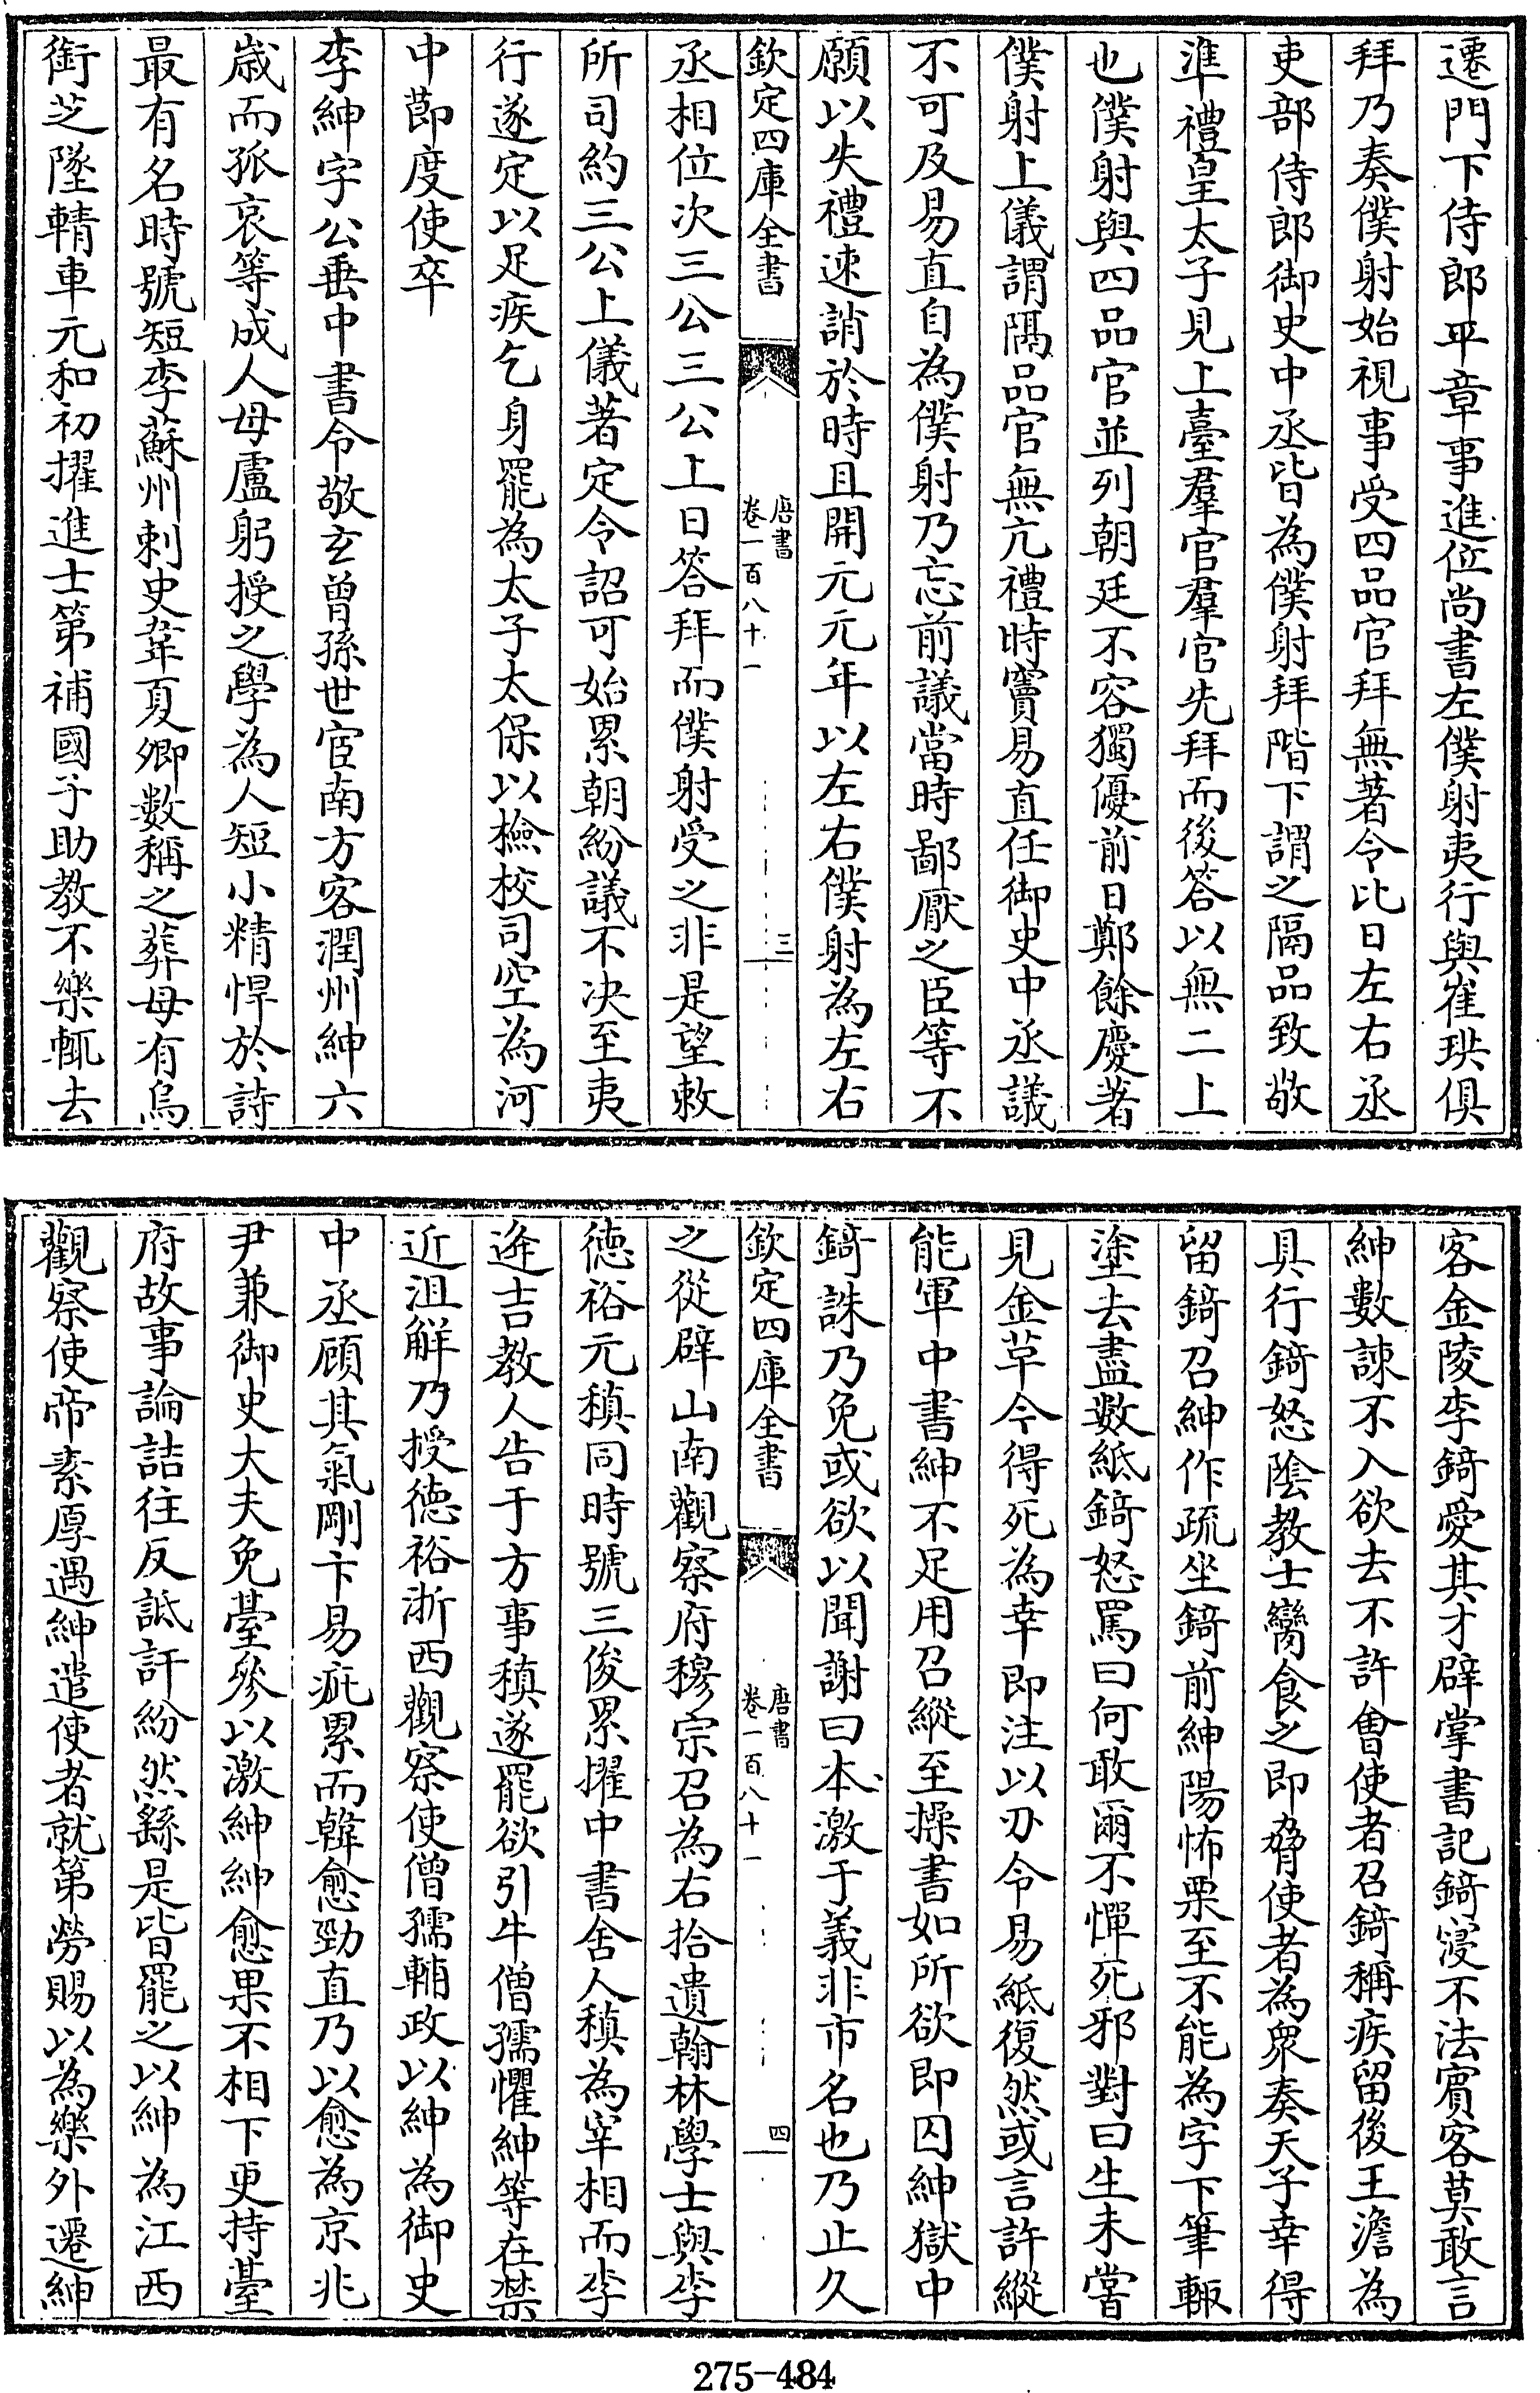 遷門下侍郎平章事進位尚書左僕射夷行與崔珙俱
拜乃奏僕射始視事受四品官拜無著令比日左右丞
吏部侍郎御史中丞皆為僕射拜階下謂之隔品致敬
準禮皇太子見上臺羣官羣官先拜而後答以無二上
也僕射與四品官並列朝廷不容獨優前日鄭餘慶著
僕射上儀謂隔品官無亢禮時竇易直任御史中丞議
不可及易直自為僕射乃忘前議當時鄙厭之臣等不
願以失禮速誚於時且開元元年以左右僕射為左右
欽定四庫全書
唐書
卷一百八十一
三
丞相位次三公三公上日答拜而僕射受之非是望敕
所司約三公上儀著定令詔可始累朝紛議不決至夷
行遂定以足疾乞身罷為太子太保以檢校司空為河
中節度使卒
李紳字公垂中書令敬玄曾孫世宦南方客潤州紳六
歲而孤哀等成人母盧躬授之學為人短小精悍於詩
最有名時號短李蘇州刺史韋夏卿數稱之葬母有烏
銜芝墜輤車元和初擢進士第補國子助教不樂輒去
客金陵李錡愛其才辟掌書記錡寖不法賓客莫敢言
紳數諫不入欲去不許會使者召錡稱疾留後王澹為
具行錡怒陰教士臠食之即脅使者為衆奏天子幸得
留錡召紳作疏坐錡前紳陽怖栗至不能為字下筆輒
塗去盡數紙錡怒罵曰何敢爾不憚死邪對曰生未嘗
見金草今得死為幸即注以刃令易紙復然或言許縱
能軍中書紳不足用召縱至操書如所欲即囚紳獄中
錡誅乃免或欲以聞謝曰本激于義非市名也乃止久
欽定四庫全書
唐書
卷一百八十一
四
之從辟山南觀察府穆宗召為右拾遺翰林學士與李
徳裕元稹同時號三俊累擢中書舍人稹為宰相而李
逄吉教人告于方事稹遂罷欲引牛僧孺懼紳等在禁
近沮解乃授徳裕浙西觀察使僧孺輔政以紳為御史
中丞顧其氣剛卞易疵累而韓愈勁直乃以愈為京兆
尹兼御史大夫免臺參以激紳紳愈果不相下更持臺
府故事論詰往反詆訐紛然繇是皆罷之以紳為江西
觀察使帝素厚遇紳遣使者就第勞賜以為樂外遷紳
275-484